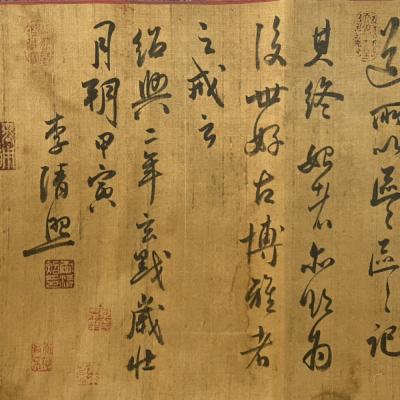 道所以區區記
其終始者亦欲為
後世好古博雅者
之戒云
紹興二年玄黓歲壯
月朔甲寅
李清照